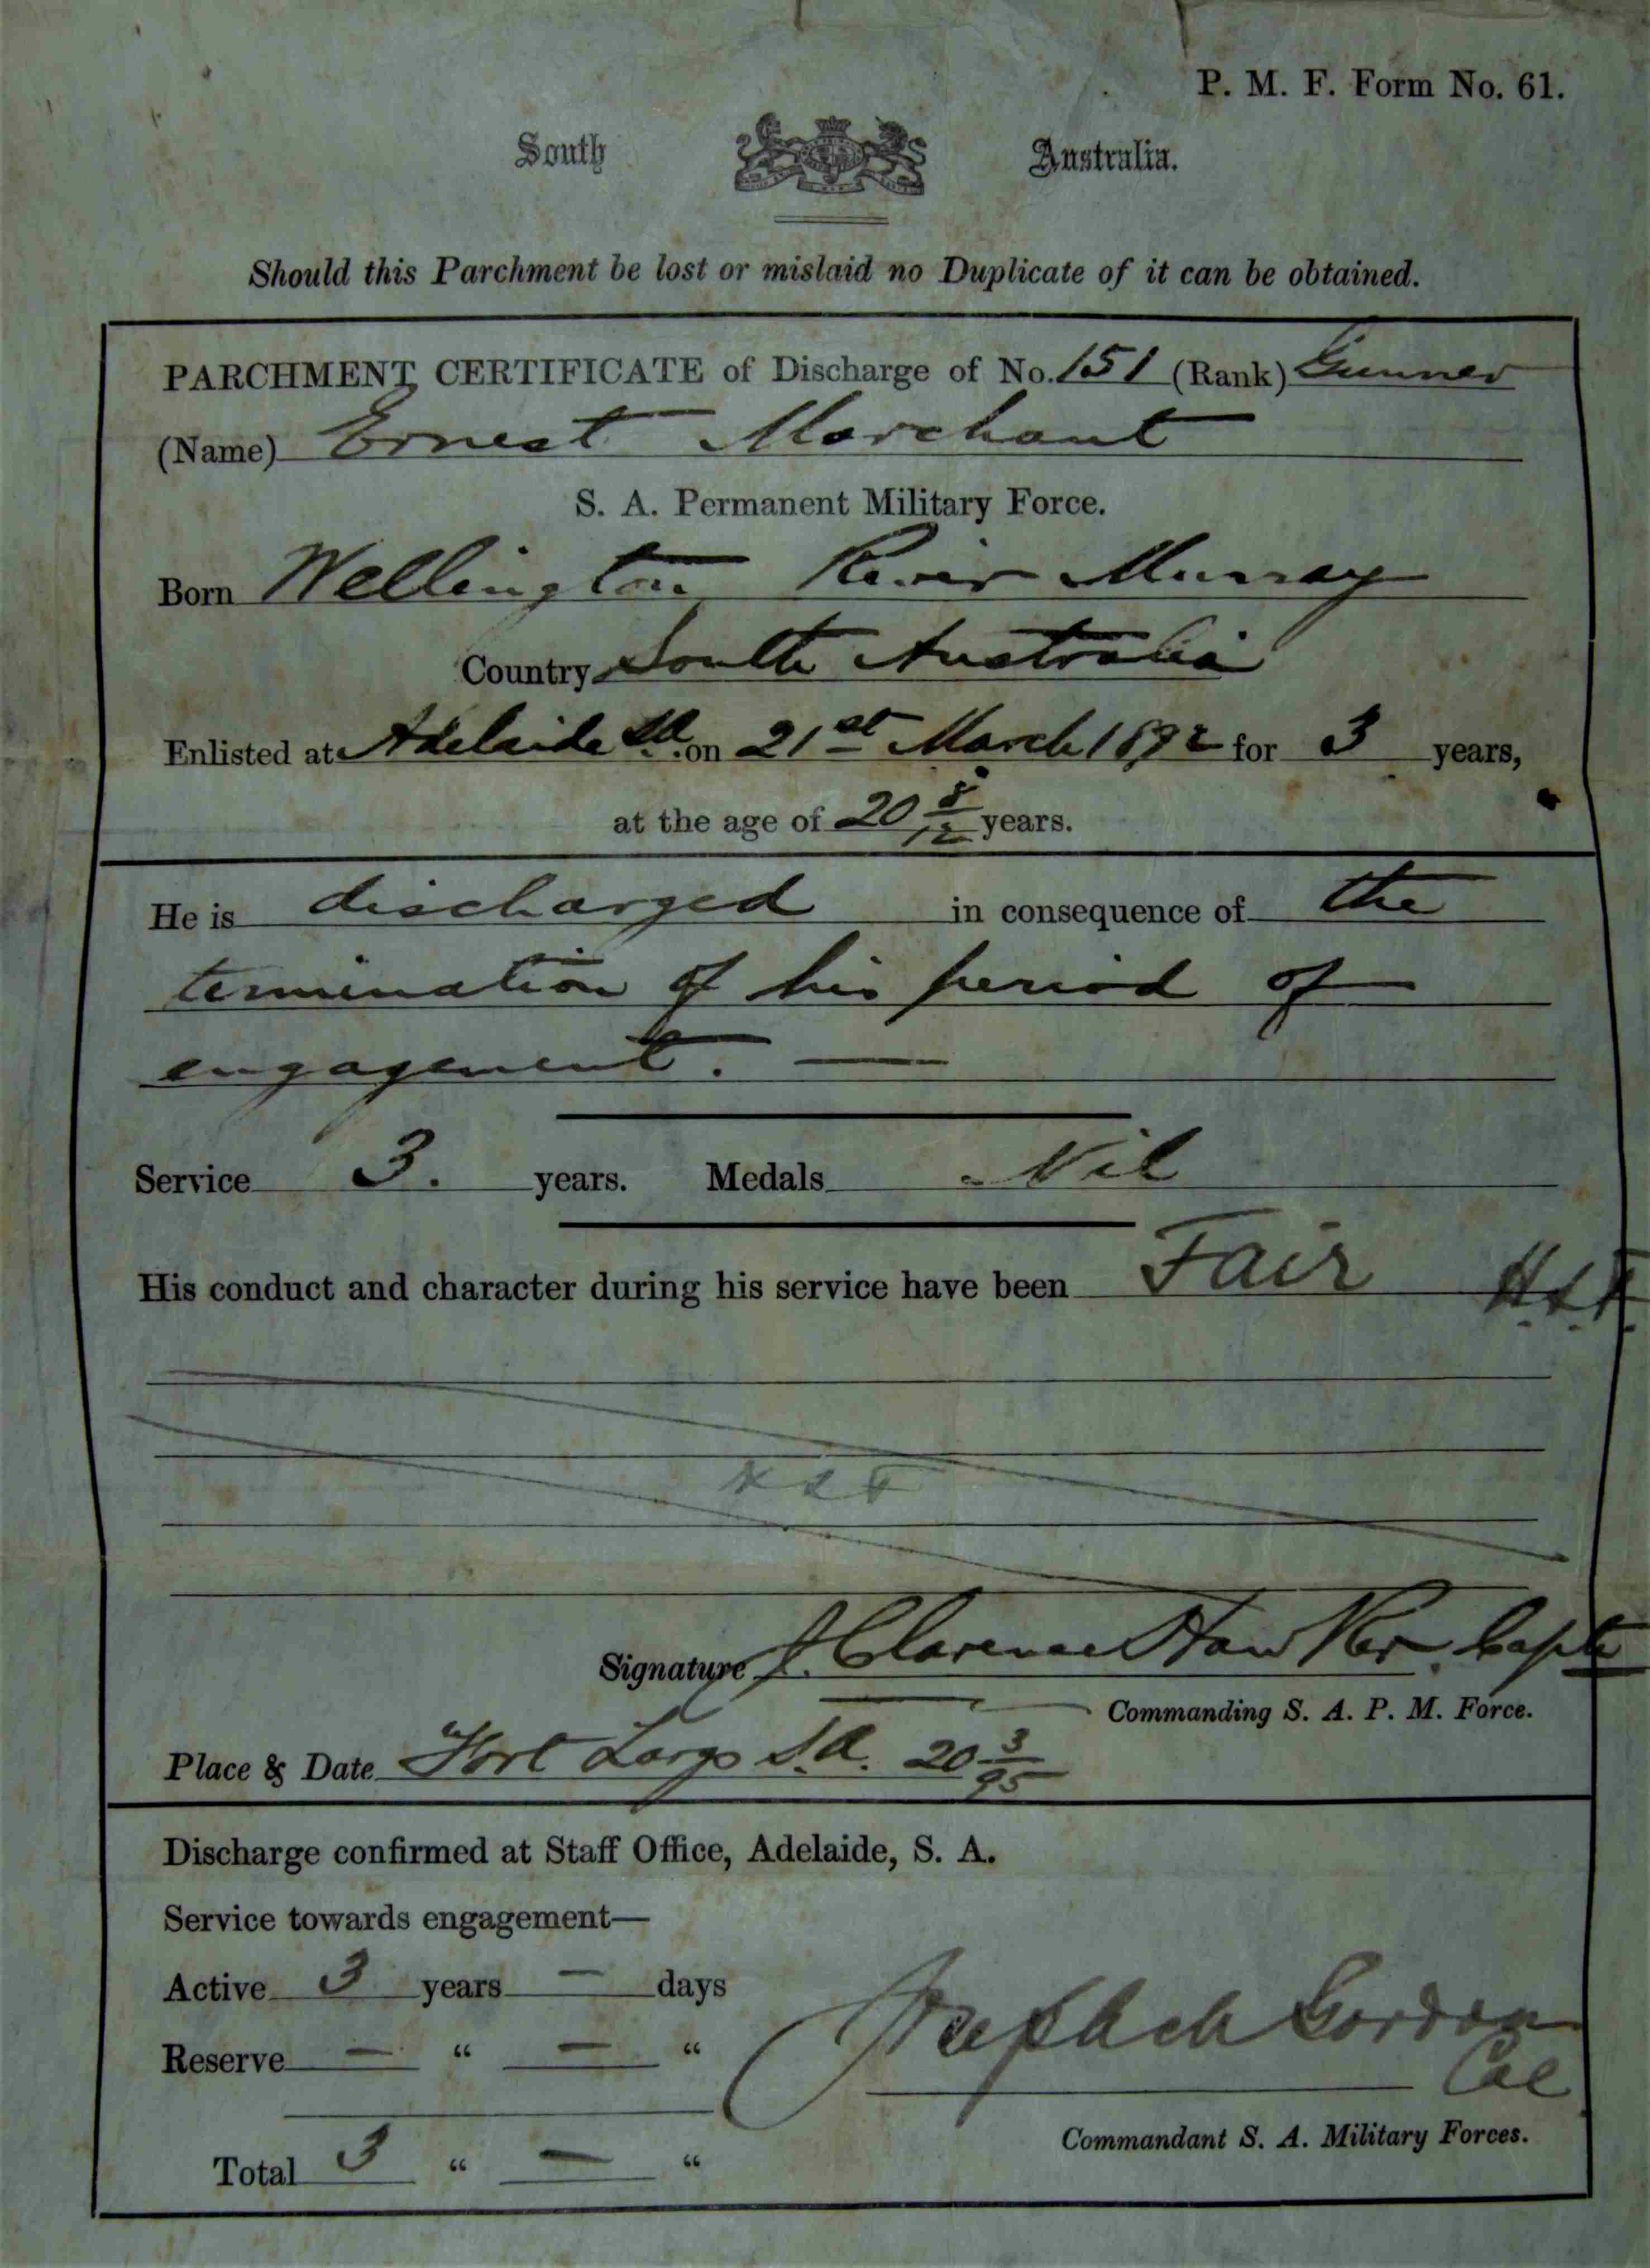 P. M. F. Form No. 61.
South Australia.
Should this Parchment be lost or mislaid no Duplicate of it can be obtained.
PARCHMENT CERTIFICATE of Discharge of No. 151 (Rank) Gunner
(Name) Ernest Marchant
S. A. Permanent Military Force.
Born Wellington River Murray
Country South Australia
Enlisted at Adelaide S.A. on 21st March 1892 for 3 years,
at the age of 20 8/12 years.
He is discharged in consequence of the
termination of his period of
engagement. —
Service 3. years. Medals Nil
His conduct and character during his service have been Fair
Signature J. Clarence Hawker. Capt
Commanding S. A. P. M. Force.
Place & Date Fort Largs S.A. 20 3/95
Discharge confirmed at Staff Office, Adelaide, S. A.
Service towards engagement—
Active 3 years — days
Reserve — “ — “
Gordon
Col
Total 3 “ — “
Commandant S. A. Military Forces.